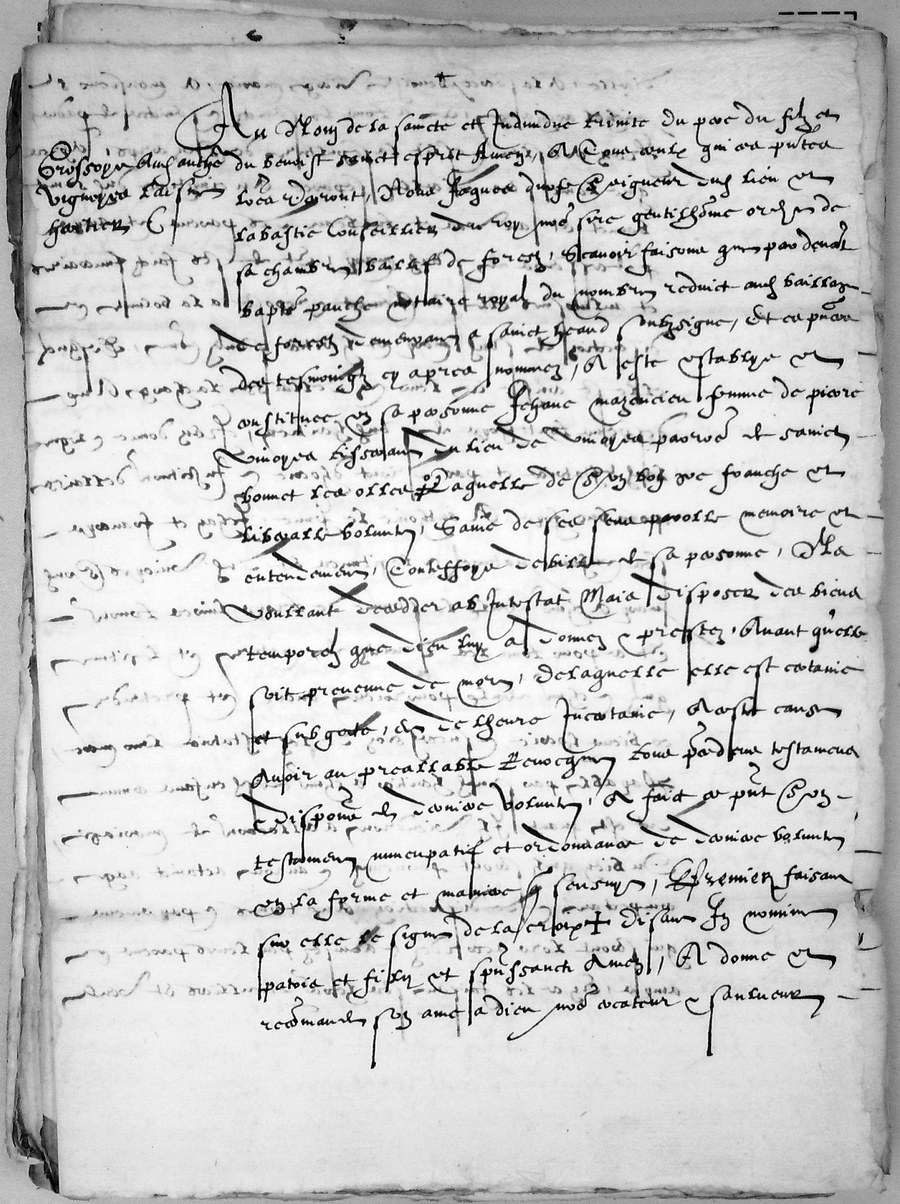 Au Nom de la saincte et Individue trinite du pere du filz et
du benoist sainct esprit Amen, A Tous ceulx qui ces pntes
Vignoyes
lres verront, Nous Jaques d'urfe Seigneur dud lieu et
la bastie Conseillier du roy nre sire gentilhome ord de
sa chambre baillif de forestz, Scavoir faisons que par devat
bapte panche notaire royal du nombre reduict aud baillage
de forestz demeurant a sainct heand soubzsigne, Et es pnces
des tesmoingz cy apres nommez, A este establye et
constituee en sa personne Jehane mazencieu femme de pierre
Vinoyes tissotant du lieu de Vinoyes parroe de sainct
bonnet les olles Laquelle de Son bon gre franche et
liberalle volunte, Saine de ses sens parolle memoire et
entendement, Toutesfoys debille de sa personne, Ne
Voullant decedder ab Intestat Mais disposer des biens
temporelz que dieu luy a donnez & prestez, Avant qu'elle
soit prevenue de mort, de laquelle elle est certaine
et subgecte, Et de lheure Incertaine, A ceste cause
Avoir au preallable Revocque Tous pcedens testamens
& dispons de derniere volunte, A faict ce pnt Son
testament nuncupatif et ordonnance de derniere volunte
en la forme et maniere q sensuyt, Et Premier faisant
sur elle le signe de la croix + disant In nomine
patris et filii et spus sancti Amen, A donne et
recomande son ame a dieu nre createur & saulveur